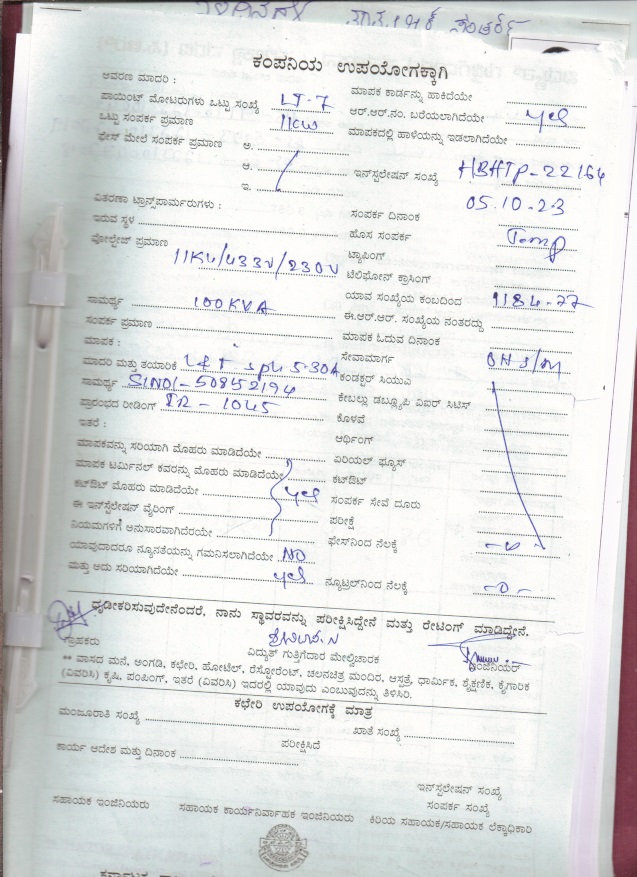 ಕಂಪನಿಯ ಉಪಯೋಗಕ್ಕಾಗಿ
ಆವರಣ ಮಾದರಿ :
ಮಾಪಕ ಕಾರ್ಡನ್ನು ಹಾಕಿದೆಯೇ
ಪಾಯಿಂಟ್ ಮೋಟರುಗಳು ಒಟ್ಟು ಸಂಖ್ಯೆ LT-7
ಆರ್.ಆರ್.ನಂ. ಬರೆಯಲಾಗಿದೆಯೇ yes
ಒಟ್ಟು ಸಂಪರ್ಕ ಪ್ರಮಾಣ 11kw
ಮಾಪಕದಲ್ಲಿ ಹಾಳೆಯನ್ನು ಇಡಲಾಗಿದೆಯೇ
ಫೇಸ್ ಮೇಲೆ ಸಂಪರ್ಕ ಪ್ರಮಾಣ ಅ.
ಆ.
ಇ.
ಇನ್‌ಸ್ಟಲೇಷನ್ ಸಂಖ್ಯೆ HBHTP-22164
ವಿತರಣಾ ಟ್ರಾನ್ಸ್‌ಫಾರ್ಮರುಗಳು :
ಸಂಪರ್ಕ ದಿನಾಂಕ 05.10.23
ಇರುವ ಸ್ಥಳ
ಹೊಸ ಸಂಪರ್ಕ Temp
ವೋಲ್ಟೇಜ್ ಪ್ರಮಾಣ 11KV/433V/230V
ಟ್ಯಾಪಿಂಗ್
ಟೆಲಿಫೋನ್ ಕ್ರಾಸಿಂಗ್
ಸಾಮರ್ಥ್ಯ 100KVA
ಯಾವ ಸಂಖ್ಯೆಯ ಕಂಬದಿಂದ
ಸಂಪರ್ಕ ಪ್ರಮಾಣ
ಈ.ಆರ್.ಆರ್. ಸಂಖ್ಯೆಯ ನಂತರದ್ದು
ಮಾಪಕ :
ಮಾಪಕ ಓದುವ ದಿನಾಂಕ
ಮಾದರಿ ಮತ್ತು ತಯಾರಿಕೆ L&T 3ph 5-30A
ಸೇವಾಮಾರ್ಗ OH S/M
ಸಾಮರ್ಥ್ಯ SlNo/-50852194
ಕಂಡಕ್ಟರ್ ಸಿಯುವಿ
ಪ್ರಾರಂಭದ ರೀಡಿಂಗ್ IR - 1045
ಕೇಬಲ್ಲು ಡಬ್ಲ್ಯೂಪಿ ವಿಐರ್ ಸಿಟಿಸ್
ಇತರೆ :
ಕೊಳವೆ
ಮಾಪಕವನ್ನು ಸರಿಯಾಗಿ ಮೊಹರು ಮಾಡಿದೆಯೇ
ಆರ್ಥಿಂಗ್
ಮಾಪಕ ಟರ್ಮಿನಲ್ ಕವರನ್ನು ಮೊಹರು ಮಾಡಿದೆಯೇ
ಏರಿಯಲ್ ಫ್ಯೂಸ್
ಕಟ್‌ಔಟ್ ಮೊಹರು ಮಾಡಿದೆಯೇ yes
ಕಟ್‌ಔಟ್
ಈ ಇನ್‌ಸ್ಟಲೇಷನ್ ವೈರಿಂಗ್
ಸಂಪರ್ಕ ಸೇವೆ ದೂರು
ನಿಯಮಗಳಿಗೆ ಅನುಸಾರವಾಗಿದೆಯೇ
ಪರೀಕ್ಷೆ
ಯಾವುದಾದರೂ ನ್ಯೂನತೆಯನ್ನು ಗಮನಿಸಲಾಗಿದೆಯೇ NO
ಫೇಸ್‌ನಿಂದ ನೆಲಕ್ಕೆ -0-
ಮತ್ತು ಅದು ಸರಿಯಾಗಿದೆಯೇ yes
ನ್ಯೂಟ್ರಲ್‌ನಿಂದ ನೆಲಕ್ಕೆ -0-
ದೃಢೀಕರಿಸುವುದೇನೆಂದರೆ, ನಾನು ಸ್ಥಾವರವನ್ನು ಪರೀಕ್ಷಿಸಿದ್ದೇನೆ ಮತ್ತು ರೇಟಿಂಗ್ ಮಾಡಿದ್ದೇನೆ.
ಗ್ರಾಹಕರು
ವಿದ್ಯುತ್ ಗುತ್ತಿಗೆದಾರ ಮೇಲ್ವಿಚಾರಕ
ಇಂಜಿನಿಯರ್
** ವಾಸದ ಮನೆ, ಅಂಗಡಿ, ಕಛೇರಿ, ಹೋಟೆಲ್, ರೆಸ್ಟೋರೆಂಟ್, ಚಲನಚಿತ್ರ ಮಂದಿರ, ಆಸ್ಪತ್ರೆ, ಧಾರ್ಮಿಕ, ಶೈಕ್ಷಣಿಕ, ಕೈಗಾರಿಕ
(ವಿವರಿಸಿ) ಕೃಷಿ, ಪಂಪಿಂಗ್, ಇತರೆ (ವಿವರಿಸಿ) ಇದರಲ್ಲಿ ಯಾವುದು ಎಂಬುವುದನ್ನು ತಿಳಿಸಿರಿ.
ಕಛೇರಿ ಉಪಯೋಗಕ್ಕೆ ಮಾತ್ರ
ಮಂಜೂರಾತಿ ಸಂಖ್ಯೆ
ಖಾತೆ ಸಂಖ್ಯೆ
ಪರೀಕ್ಷಿಸಿದೆ
ಕಾರ್ಯ ಆದೇಶ ಮತ್ತು ದಿನಾಂಕ
ಇನ್‌ಸ್ಟಲೇಷನ್ ಸಂಖ್ಯೆ
ಸಂಪರ್ಕ ಸಂಖ್ಯೆ
ಸಹಾಯಕ ಇಂಜಿನಿಯರು
ಸಹಾಯಕ ಕಾರ್ಯನಿರ್ವಾಹಕ ಇಂಜಿನಿಯರು
ಕಿರಿಯ ಸಹಾಯಕ/ಸಹಾಯಕ ಲೆಕ್ಕಾಧಿಕಾರಿ